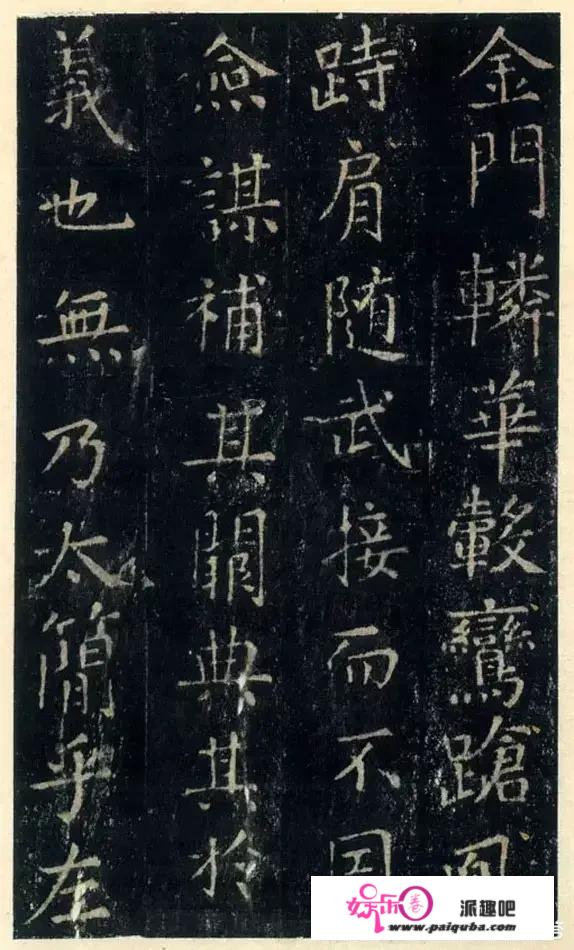 金門轔華轂鸞蹌
跱肩随武接而不
僉謀補其闕典其於
義也無乃太簡乎左
娱乐圈 派趣吧
www.paiquba.com